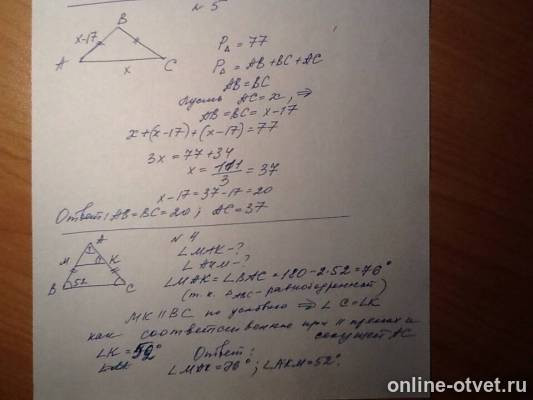 N 5
B
x-17
A
x
C
P△ = 77
P△ = AB + BC + AC
AB = BC
Пусть AC = x, ⇒
AB = BC = x - 17
x + (x - 17) + (x - 17) = 77
3x = 77 + 34
x = 111/3 = 37
x - 17 = 37 - 17 = 20
Ответ: AB = BC = 20; AC = 37
N 4
A
M
K
B
52
C
∠MAK - ?
∠AKM - ?
∠MAK = ∠BAC = 180 - 2·52 = 76°
(т.к. △ABC - равнобедренный)
MK || BC по условию ⇒ ∠C = ∠K
как соответственные при || прямых и
секущей AC
∠K = 52°
Ответ:
∠MAK = 76°; ∠AKM = 52°.
online-otvet.ru